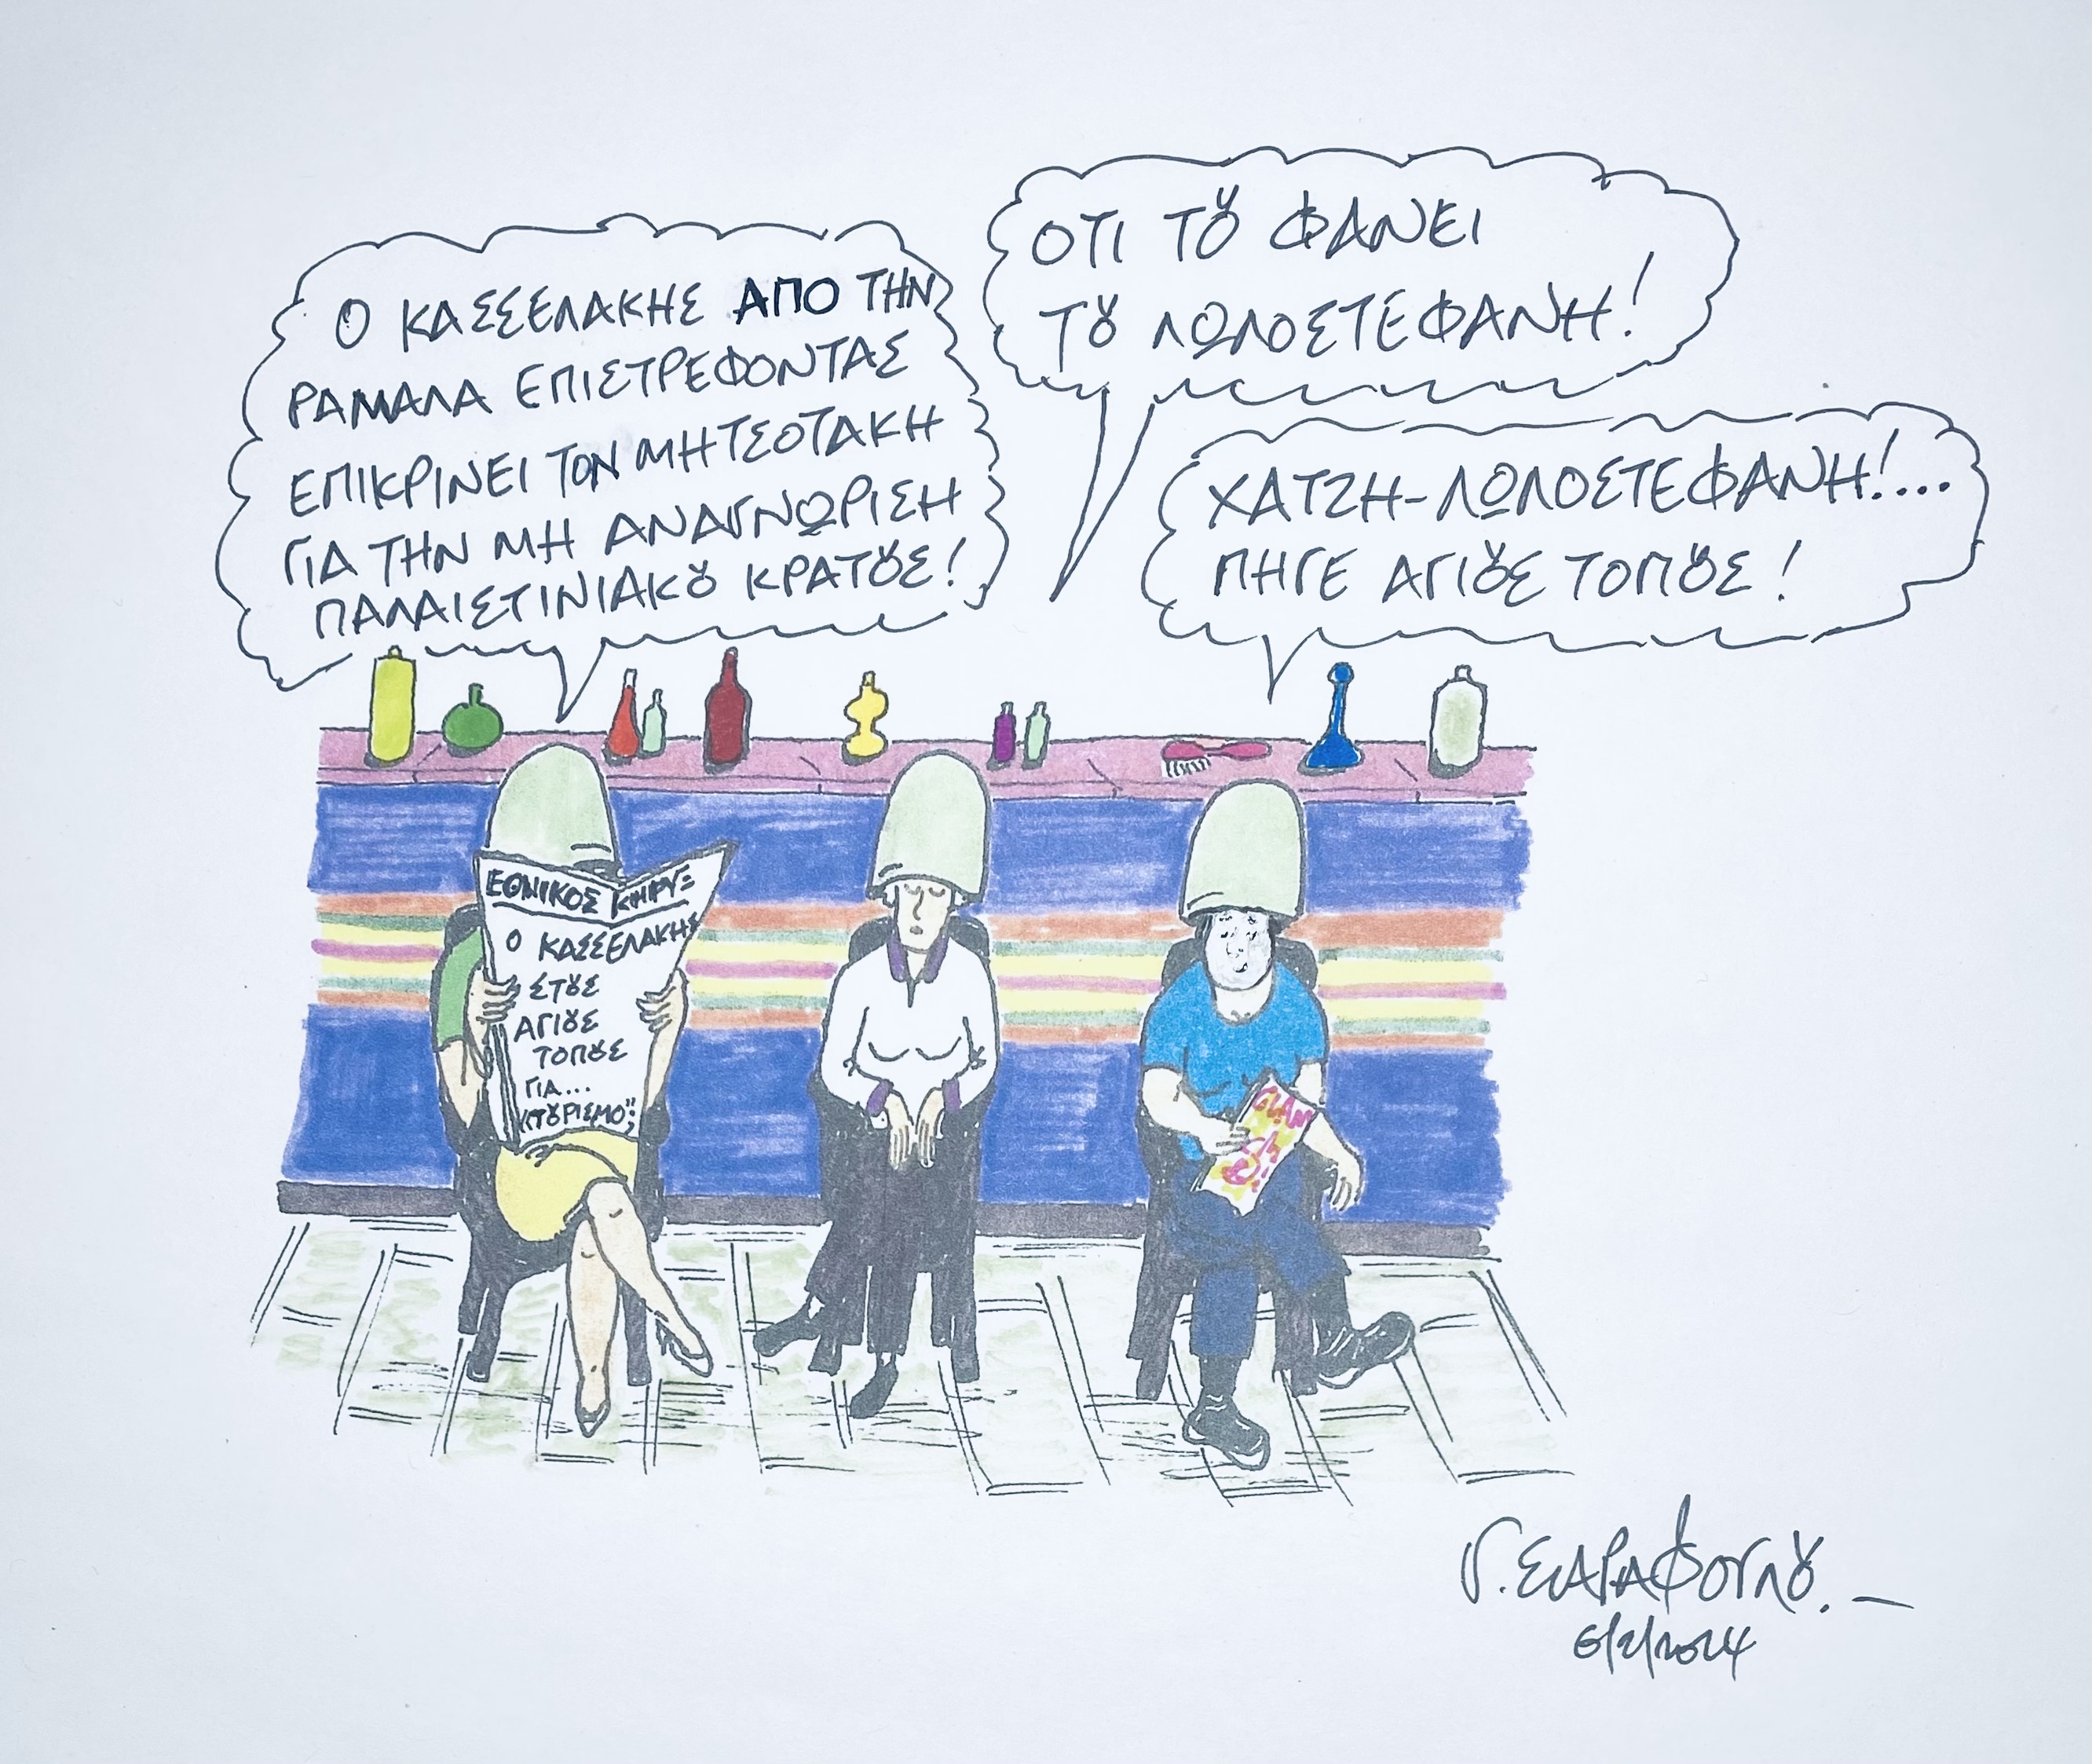 Ο ΚΑΣΣΕΛΑΚΗΣ ΑΠΟ ΤΗΝ
ΡΑΜΑΛΑ ΕΠΙΣΤΡΕΦΟΝΤΑΣ
ΕΠΙΚΡΙΝΕΙ ΤΟΝ ΜΗΤΣΟΤΑΚΗ
ΓΙΑ ΤΗΝ ΜΗ ΑΝΑΓΝΩΡΙΣΗ
ΠΑΛΑΙΣΤΙΝΙΑΚΟΥ ΚΡΑΤΟΥΣ!
ΟΤΙ ΤΟΥ ΦΑΝΕΙ
ΤΟΥ ΛΩΛΟΣΤΕΦΑΝΗ!
ΧΑΤΖΗ-ΛΩΛΟΣΤΕΦΑΝΗ!....
ΠΗΓΕ ΑΓΙΟΥΣ ΤΟΠΟΥΣ!
ΕΘΝΙΚΟΣ ΚΗΡΥΞ
Ο ΚΑΣΣΕΛΑΚΗΣ
ΣΤΟΥΣ
ΑΓΙΟΥΣ
ΤΟΠΟΥΣ
ΓΙΑ...
"ΤΟΥΡΙΣΜΟ";
Γ. ΣΑΡΑΦΟΓΛΟΥ.-
6/2/2024